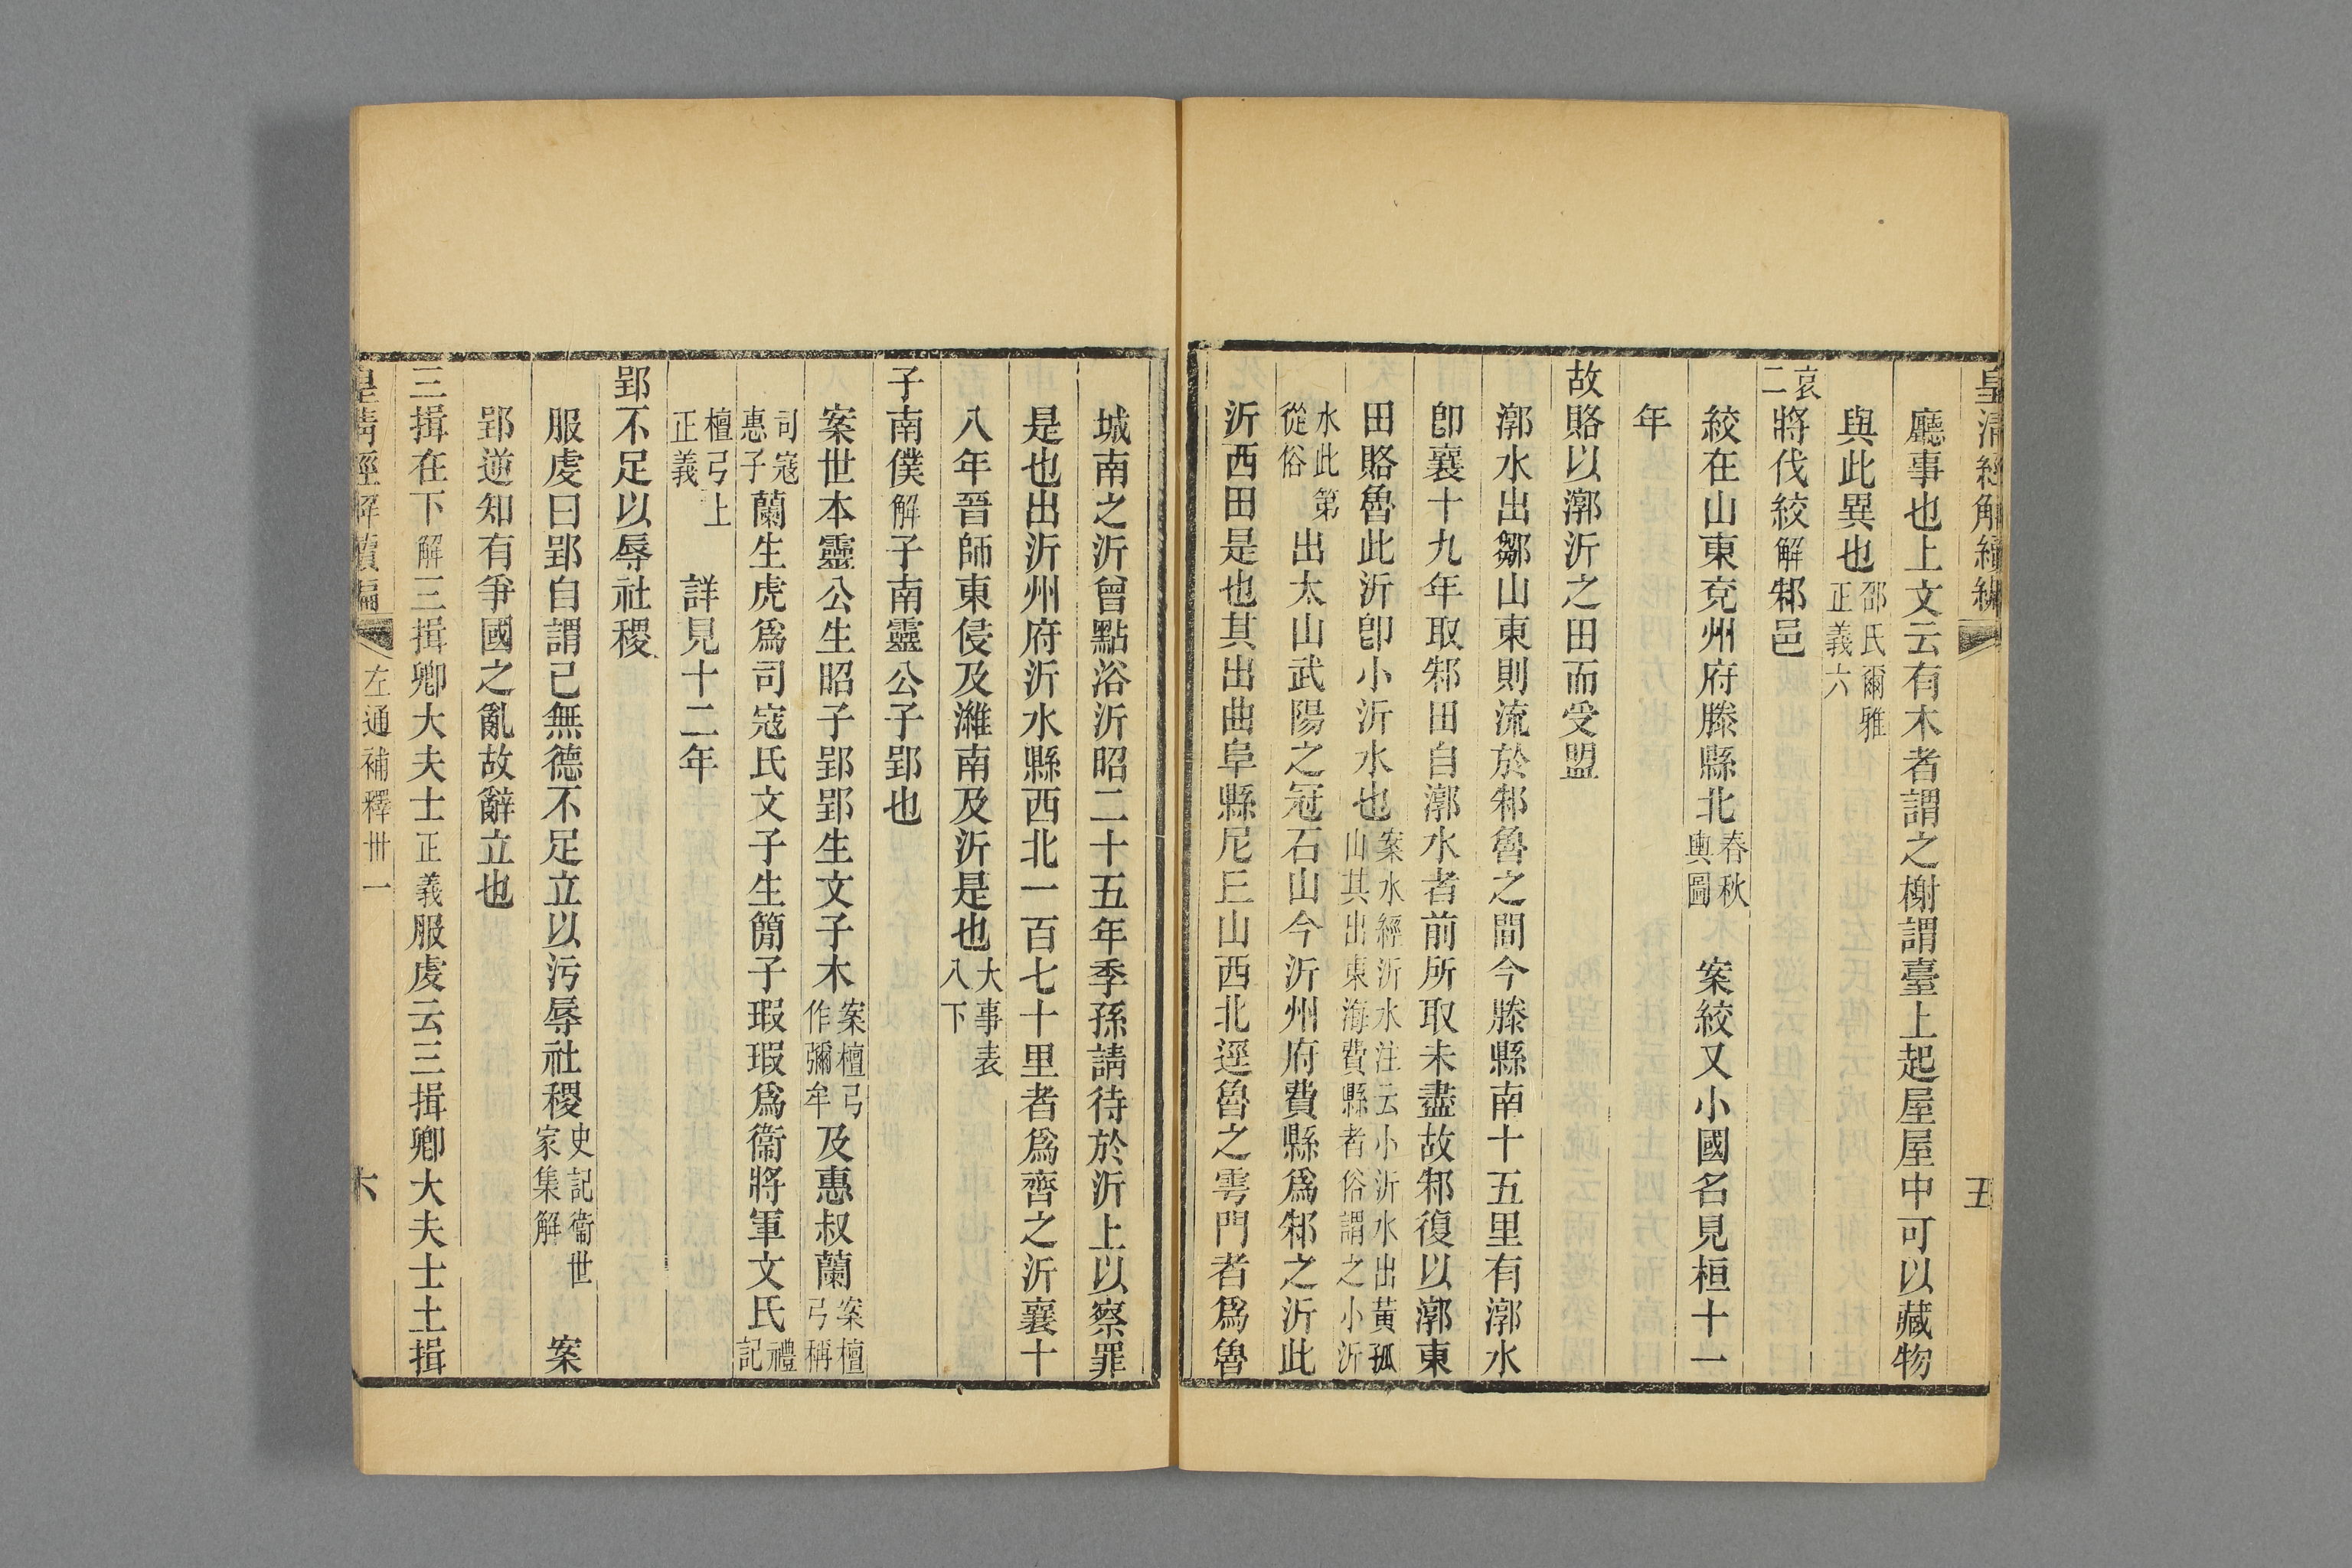 皇清經解續編
五
廳事也上文云有木者謂之榭謂臺上起屋屋中可以藏物
與此異也邵氏爾雅正義六
哀二將伐絞解邾邑
絞在山東兗州府滕縣北春秋輿圖 案絞又小國名見桓十一
年
故賂以漷沂之田而受盟
漷水出鄒山東則流於邾魯之間今滕縣南十五里有漷水
卽襄十九年取邾田自漷水者前所取未盡故邾復以漷東
田賂魯此沂卽小沂水也案水經沂水注云小沂水出黃孤山其出東海費縣者俗謂之小沂
水此第從俗出太山武陽之冠石山今沂州府費縣爲邾之沂此
沂西田是也其出曲阜縣尼丘山西北逕魯之雩門者爲魯
城南之沂曾點浴沂昭二十五年季孫請待於沂上以察罪
是也出沂州府沂水縣西北一百七十里者爲齊之沂襄十
八年晉師東侵及濰南及沂是也大事表八下
子南僕解子南靈公子郢也
案世本靈公生昭子郢郢生文子木案檀弓作彌牟及惠叔蘭案檀弓稱
司寇惠子蘭生虎爲司寇氏文子生簡子瑕瑕爲衞將軍文氏禮記
檀弓上正義 詳見十二年
郢不足以辱社稷
服虔曰郢自謂己無德不足立以污辱社稷史記衞世家集解 案
郢逆知有爭國之亂故辭立也
三揖在下解三揖卿大夫士正義服虔云三揖卿大夫士土揖
皇清經解續編
左通補釋卅一
六